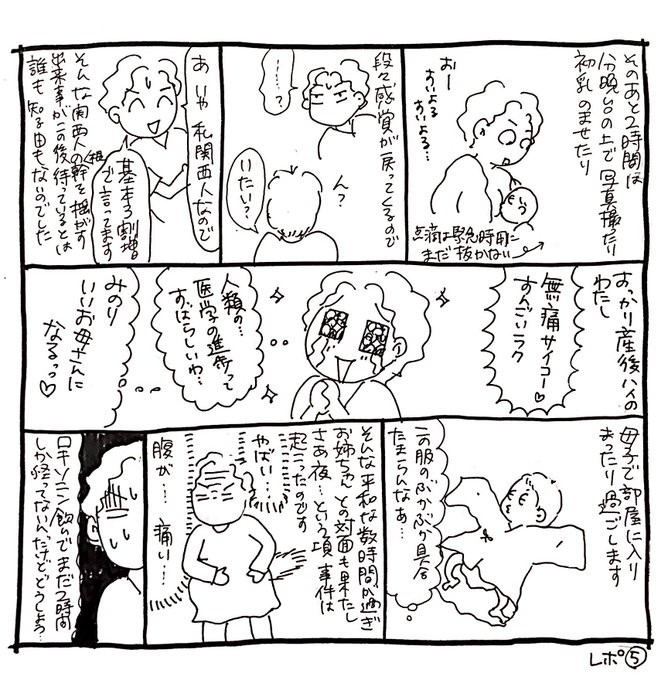 そのあと2時間は
分娩台の上で写真撮ったり
初乳のませたり
おー
すいよる
すいよる…
点滴は緊急時用に
まだ抜かない
段々感覚が戻ってくるので
……？
ん？
いたい？
あ、いや 私関西人なので
基本3割増
で言ってます
そんな関西人の根幹を揺がす
出来事がこの後待っているとは
誰も知る由もないのでした
すっかり産後ハイの
わたし
無痛サイコー♡
すんごいラク
人類の…
医学の進歩って
すばらしいわ…
みのり
いいお母さんに
なるっっ♡
母子で部屋に入り
まったり過ごします
この服のぶかぶか具合
たまらんなぁ…
そんな平和な数時間が過ぎ
お姉ちゃんとの対面も果たし
さあ夜…という頃 事件は
起こったのです
やばい…
腹が… 痛い…
ロキソニン飲んでまだ2時間
しか経てないんだけどどうしよう…
レポ⑤